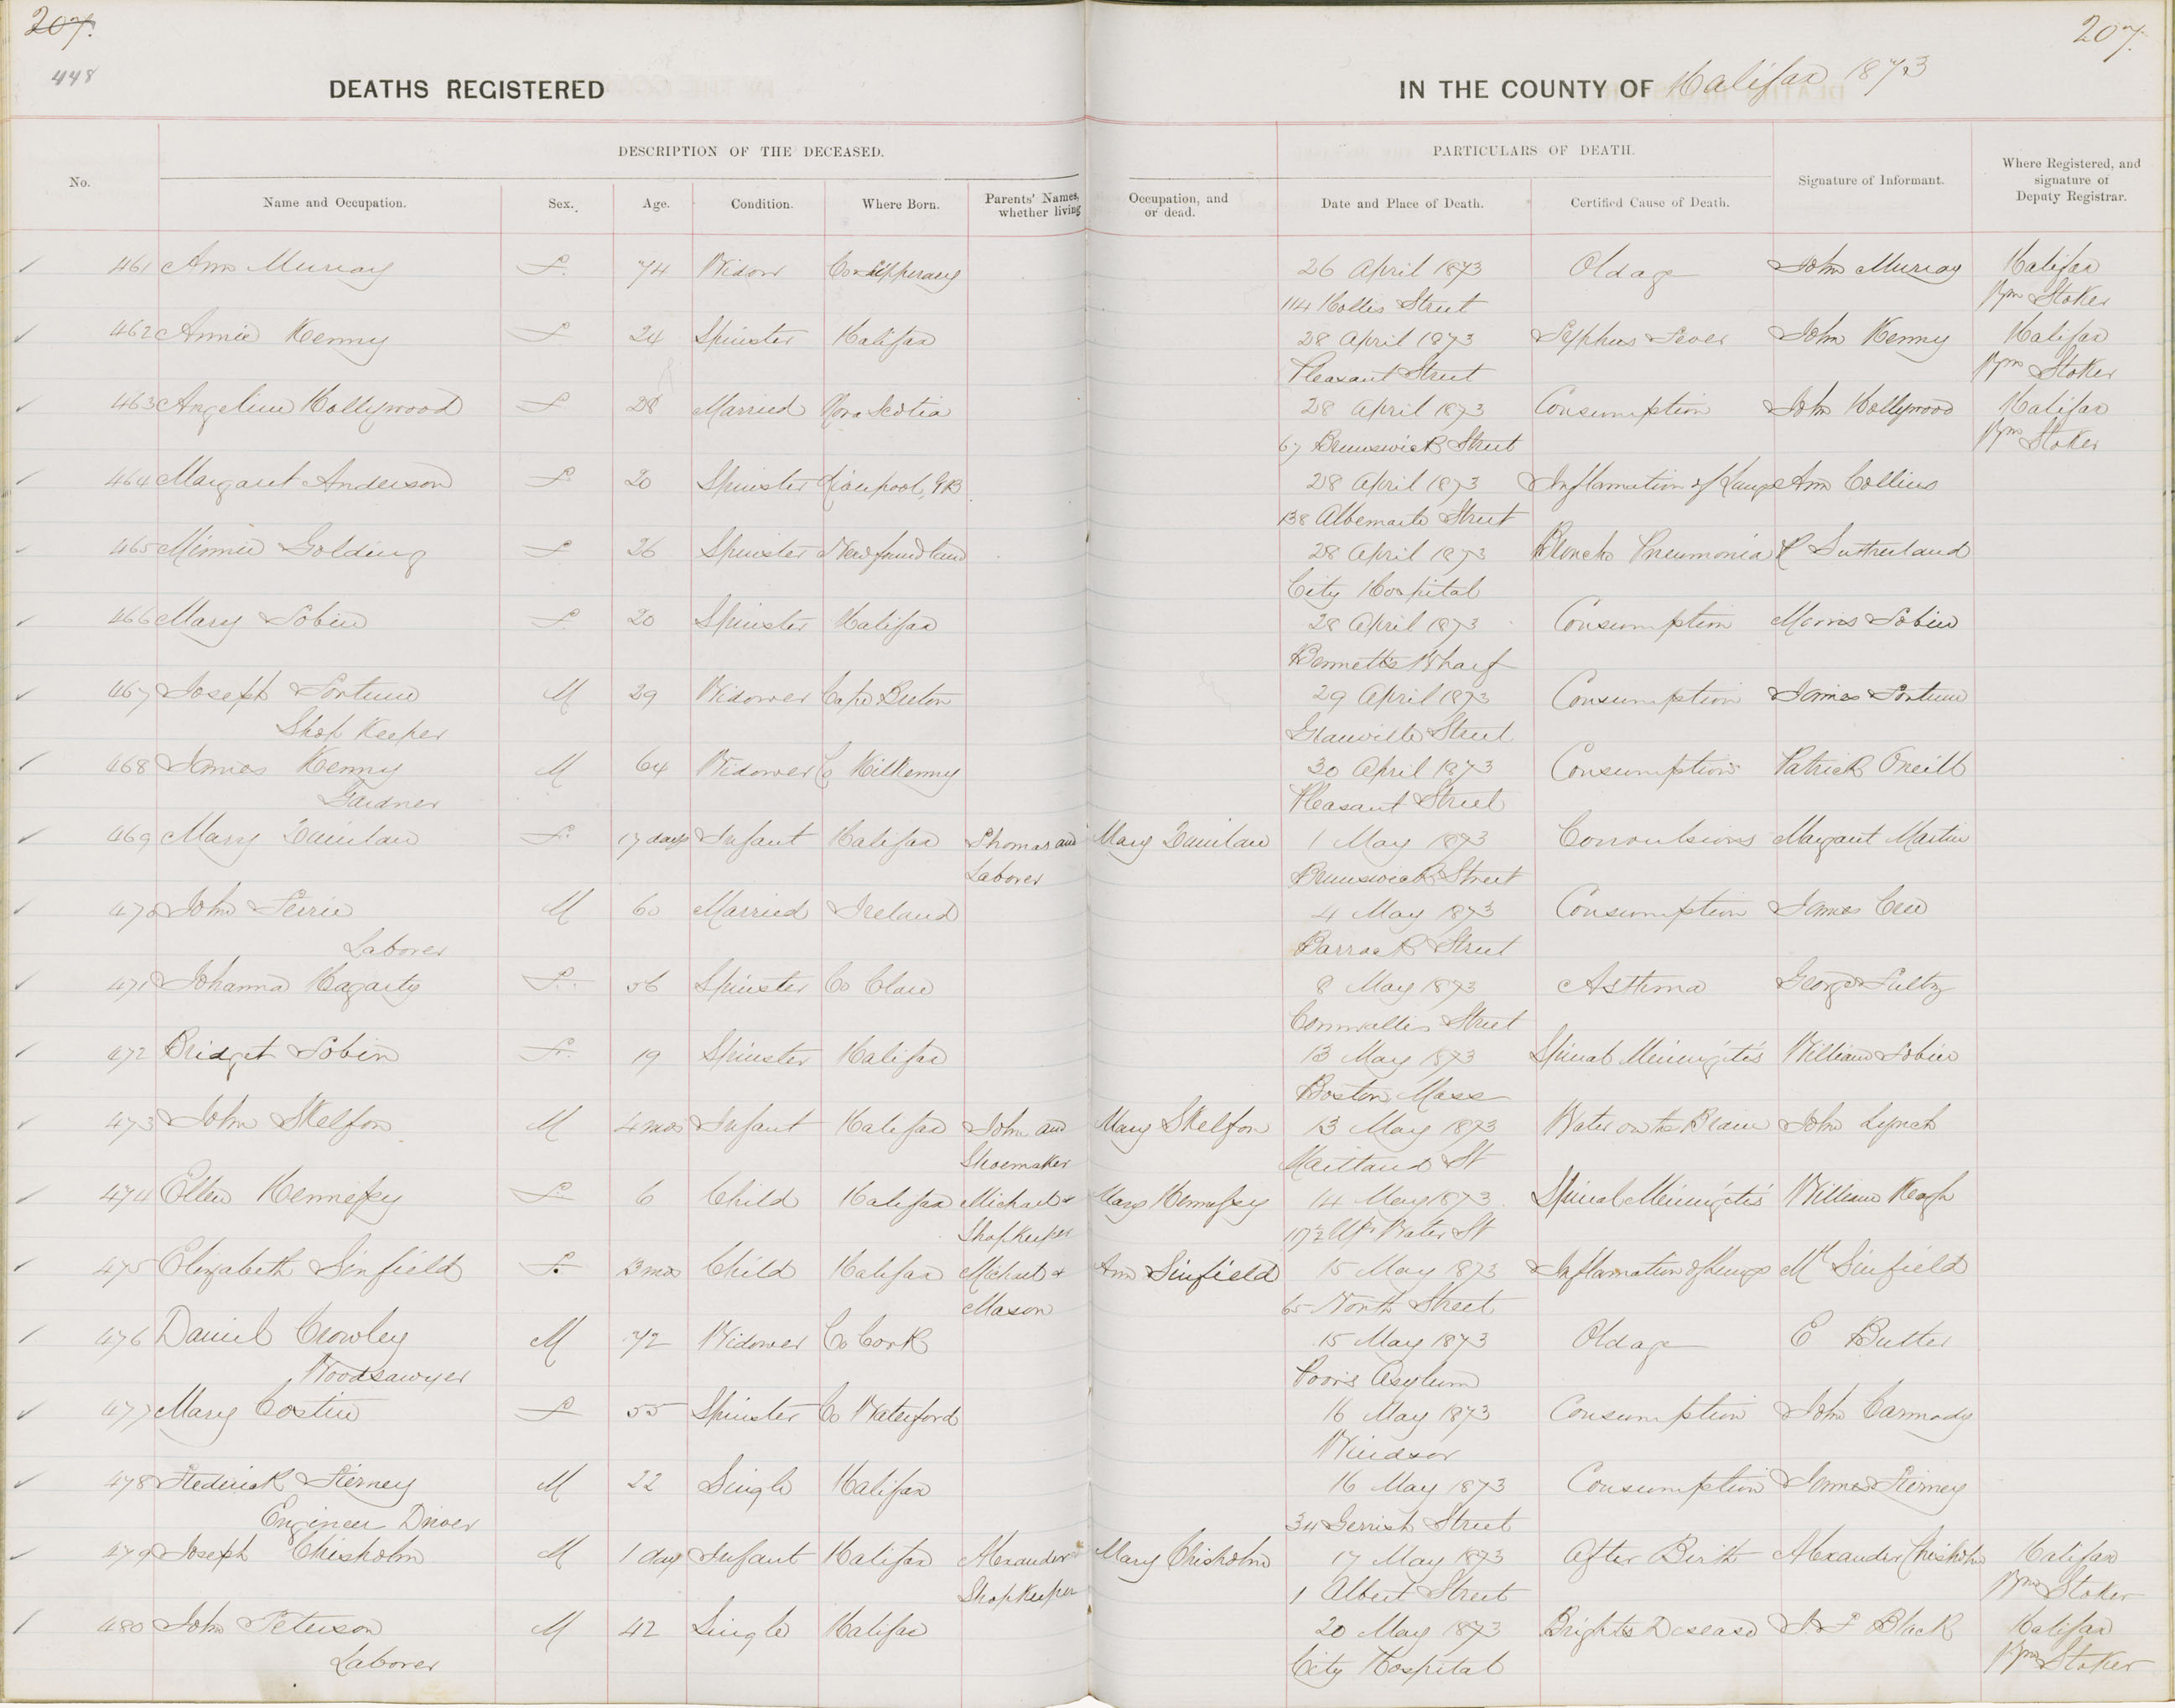 207. 207.
448
DEATHS REGISTERED IN THE COUNTY OF Halifax 1873
DESCRIPTION OF THE DECEASED. PARTICULARS OF DEATH.
No. Name and Occupation. Sex. Age. Condition. Where Born. Parents' Names, whether living Occupation, and or dead. Date and Place of Death. Certified Cause of Death. Signature of Informant. Where Registered, and signature of Deputy Registrar.
461 Ann Murray F. 74 Widow Co Tipperary 26 April 1873 Old age John Murray Halifax
114 Hollis Street Wm Stoker
462 Annie Kenny F 24 Spinster Halifax 28 April 1873 Typhus Fever John Kenny Halifax
Pleasant Street Wm Stoker
463 Angeline Hollywood F 28 Married Nova Scotia 28 April 1873 Consumption John Hollywood Halifax
67 Brunswick Street Wm Stoker
464 Margaret Anderson F. 20 Spinster Liverpool, GB 28 April 1873 Inflamation of Lungs Ann Collins
138 Albemarle Street
465 Minnie Golding F 26 Spinster Newfoundland 28 April 1873 Broncho Pneumonia P Sutherland
City Hospital
466 Mary Tobin F 20 Spinster Halifax 28 April 1873 Consumption Morris Tobin
Bennetts Wharf
467 Joseph Fortune M 29 Widower Cape Breton 29 April 1873 Consumption James Fortune
Shop Keeper Granville Street
468 James Kenny M 64 Widower Co Kilkenny 30 April 1873 Consumption Patrick Oneill
Gardner Pleasant Street
469 Mary Quinlan F. 17 days Infant Halifax Thomas and Mary Quinlan 1 May 1873 Convulsions Margaret Martin
Laborer Brunswick Street
470 John Ferrie M 60 Married Ireland 4 May 1873 Consumption James
Laborer Barrack Street
471 Johanna Hagarty F. 56 Spinster Co Clare 8 May 1873 Asthma George Fultz
Cornwallis Street
472 Bridget Tobin F. 19 Spinster Halifax 13 May 1873 Spinal Meningitis William Tobin
Boston Mass
473 John Skelfon M 4 mos Infant Halifax John and Mary Skelfon 13 May 1873 Water on the Brain John Lynch
Shoemaker Maitland St
474 Ellen Hennessy F. 6 Child Halifax Michael & Mary Hennessy 14 May 1873 Spinal Meningitis William Keogh
Shopkeeper 172 Up Water St
475 Elizabeth Sinfield F. 3 mos Child Halifax Michael & Ann Sinfield 15 May 1873 Inflamation of Lungs Ml Sinfield
Mason 65 North Street
476 Daniel Crowley M 72 Widower Co Cork 15 May 1873 Old age E Butler
Woodsawyer Poors Asylum
477 Mary Costin F 55 Spinster Co Waterford 16 May 1873 Consumption John Carmody
Windsor
478 Frederick Tierney M 22 Single Halifax 16 May 1873 Consumption James Tierney
Engineer Driver 34 Gerrish Street
479 Joseph Chisholm M 1 day Infant Halifax Alexander & Mary Chisholm 17 May 1873 After Birth Alexander Chisholm Halifax
Shopkeeper 1 Albert Street Wm Stoker
480 John Peterson M 42 Single Halifax 20 May 1873 Brights Disease J. F Black Halifax
Laborer City Hospital Wm Stoker